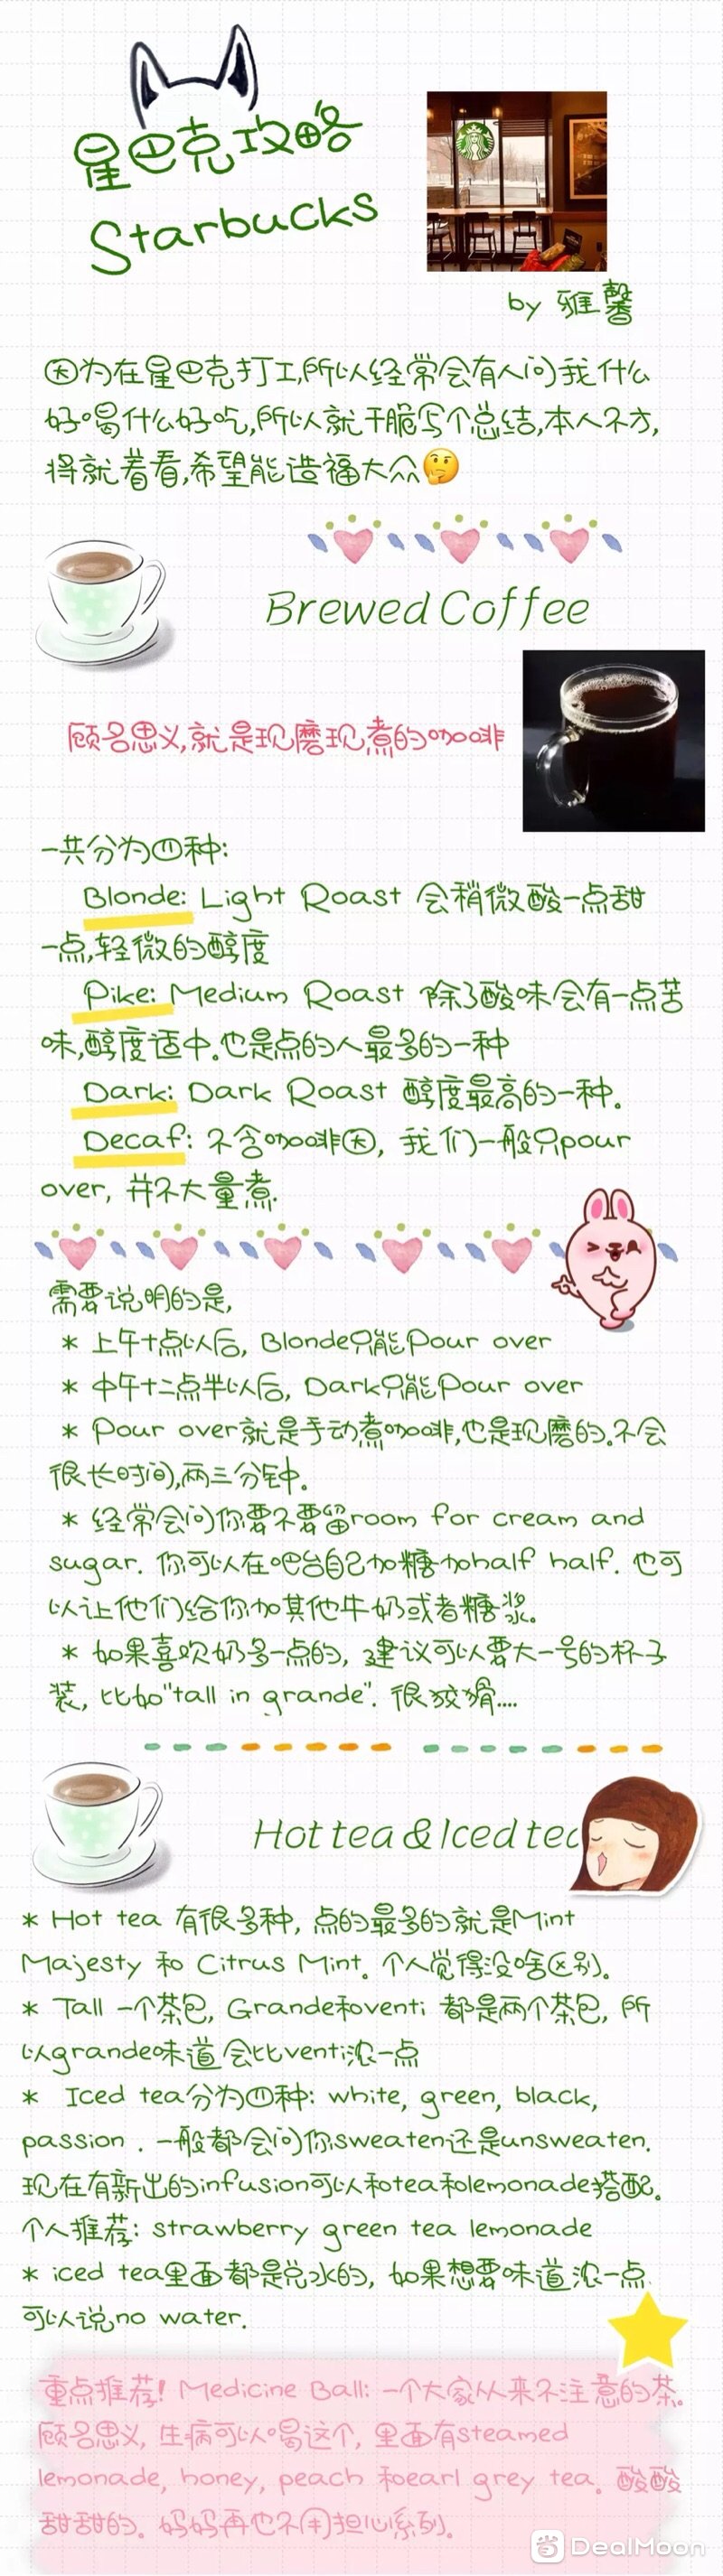 星巴克攻略
Starbucks
by 雅馨
因为在星巴克打工,所以经常会有人问我什么
好喝什么好吃,所以就干脆写个总结,本人不才,
将就着看,希望能造福大众🤔
Brewed Coffee
顾名思义,就是现磨现煮的咖啡
一共分为四种:
Blonde: Light Roast 会稍微酸一点甜
一点,轻微的醇度
Pike: Medium Roast 除了酸味会有一点苦
味,醇度适中。也是点的人最多的一种
Dark: Dark Roast 醇度最高的一种。
Decaf: 不含咖啡因, 我们一般只pour
over, 并不大量煮.
需要说明的是,
* 上午十点以后, Blonde只能Pour over
* 中午十二点半以后, Dark只能Pour over
* Pour over就是手动煮咖啡,也是现磨的。不会
很长时间,两三分钟。
* 经常会问你要不要留room for cream and
sugar. 你可以在吧台自己加糖加half half. 也可
以让他们给你加其他牛奶或者糖浆。
* 如果喜欢奶多一点的, 建议可以要大一号的杯子
装, 比如"tall in grande". 很狡猾....
Hot tea & Iced tea
* Hot tea 有很多种, 点的最多的就是Mint
Majesty 和 Citrus Mint。个人觉得没啥区别。
* Tall 一个茶包, Grande和venti 都是两个茶包, 所
以grande味道会比venti浓一点
* Iced tea分为四种: white, green, black,
passion . 一般都会问你sweaten还是unsweaten.
现在有新出的infusion可以和tea和lemonade搭配。
个人推荐: strawberry green tea lemonade
* iced tea里面都是兑水的, 如果想要味道浓一点
可以说no water.
重点推荐! Medicine Ball: 一个大家从来不注意的茶。
顾名思义, 生病可以喝这个, 里面有steamed
lemonade, honey, peach 和earl grey tea。酸酸
甜甜的。妈妈再也不用担心系列。
省 DealMoon